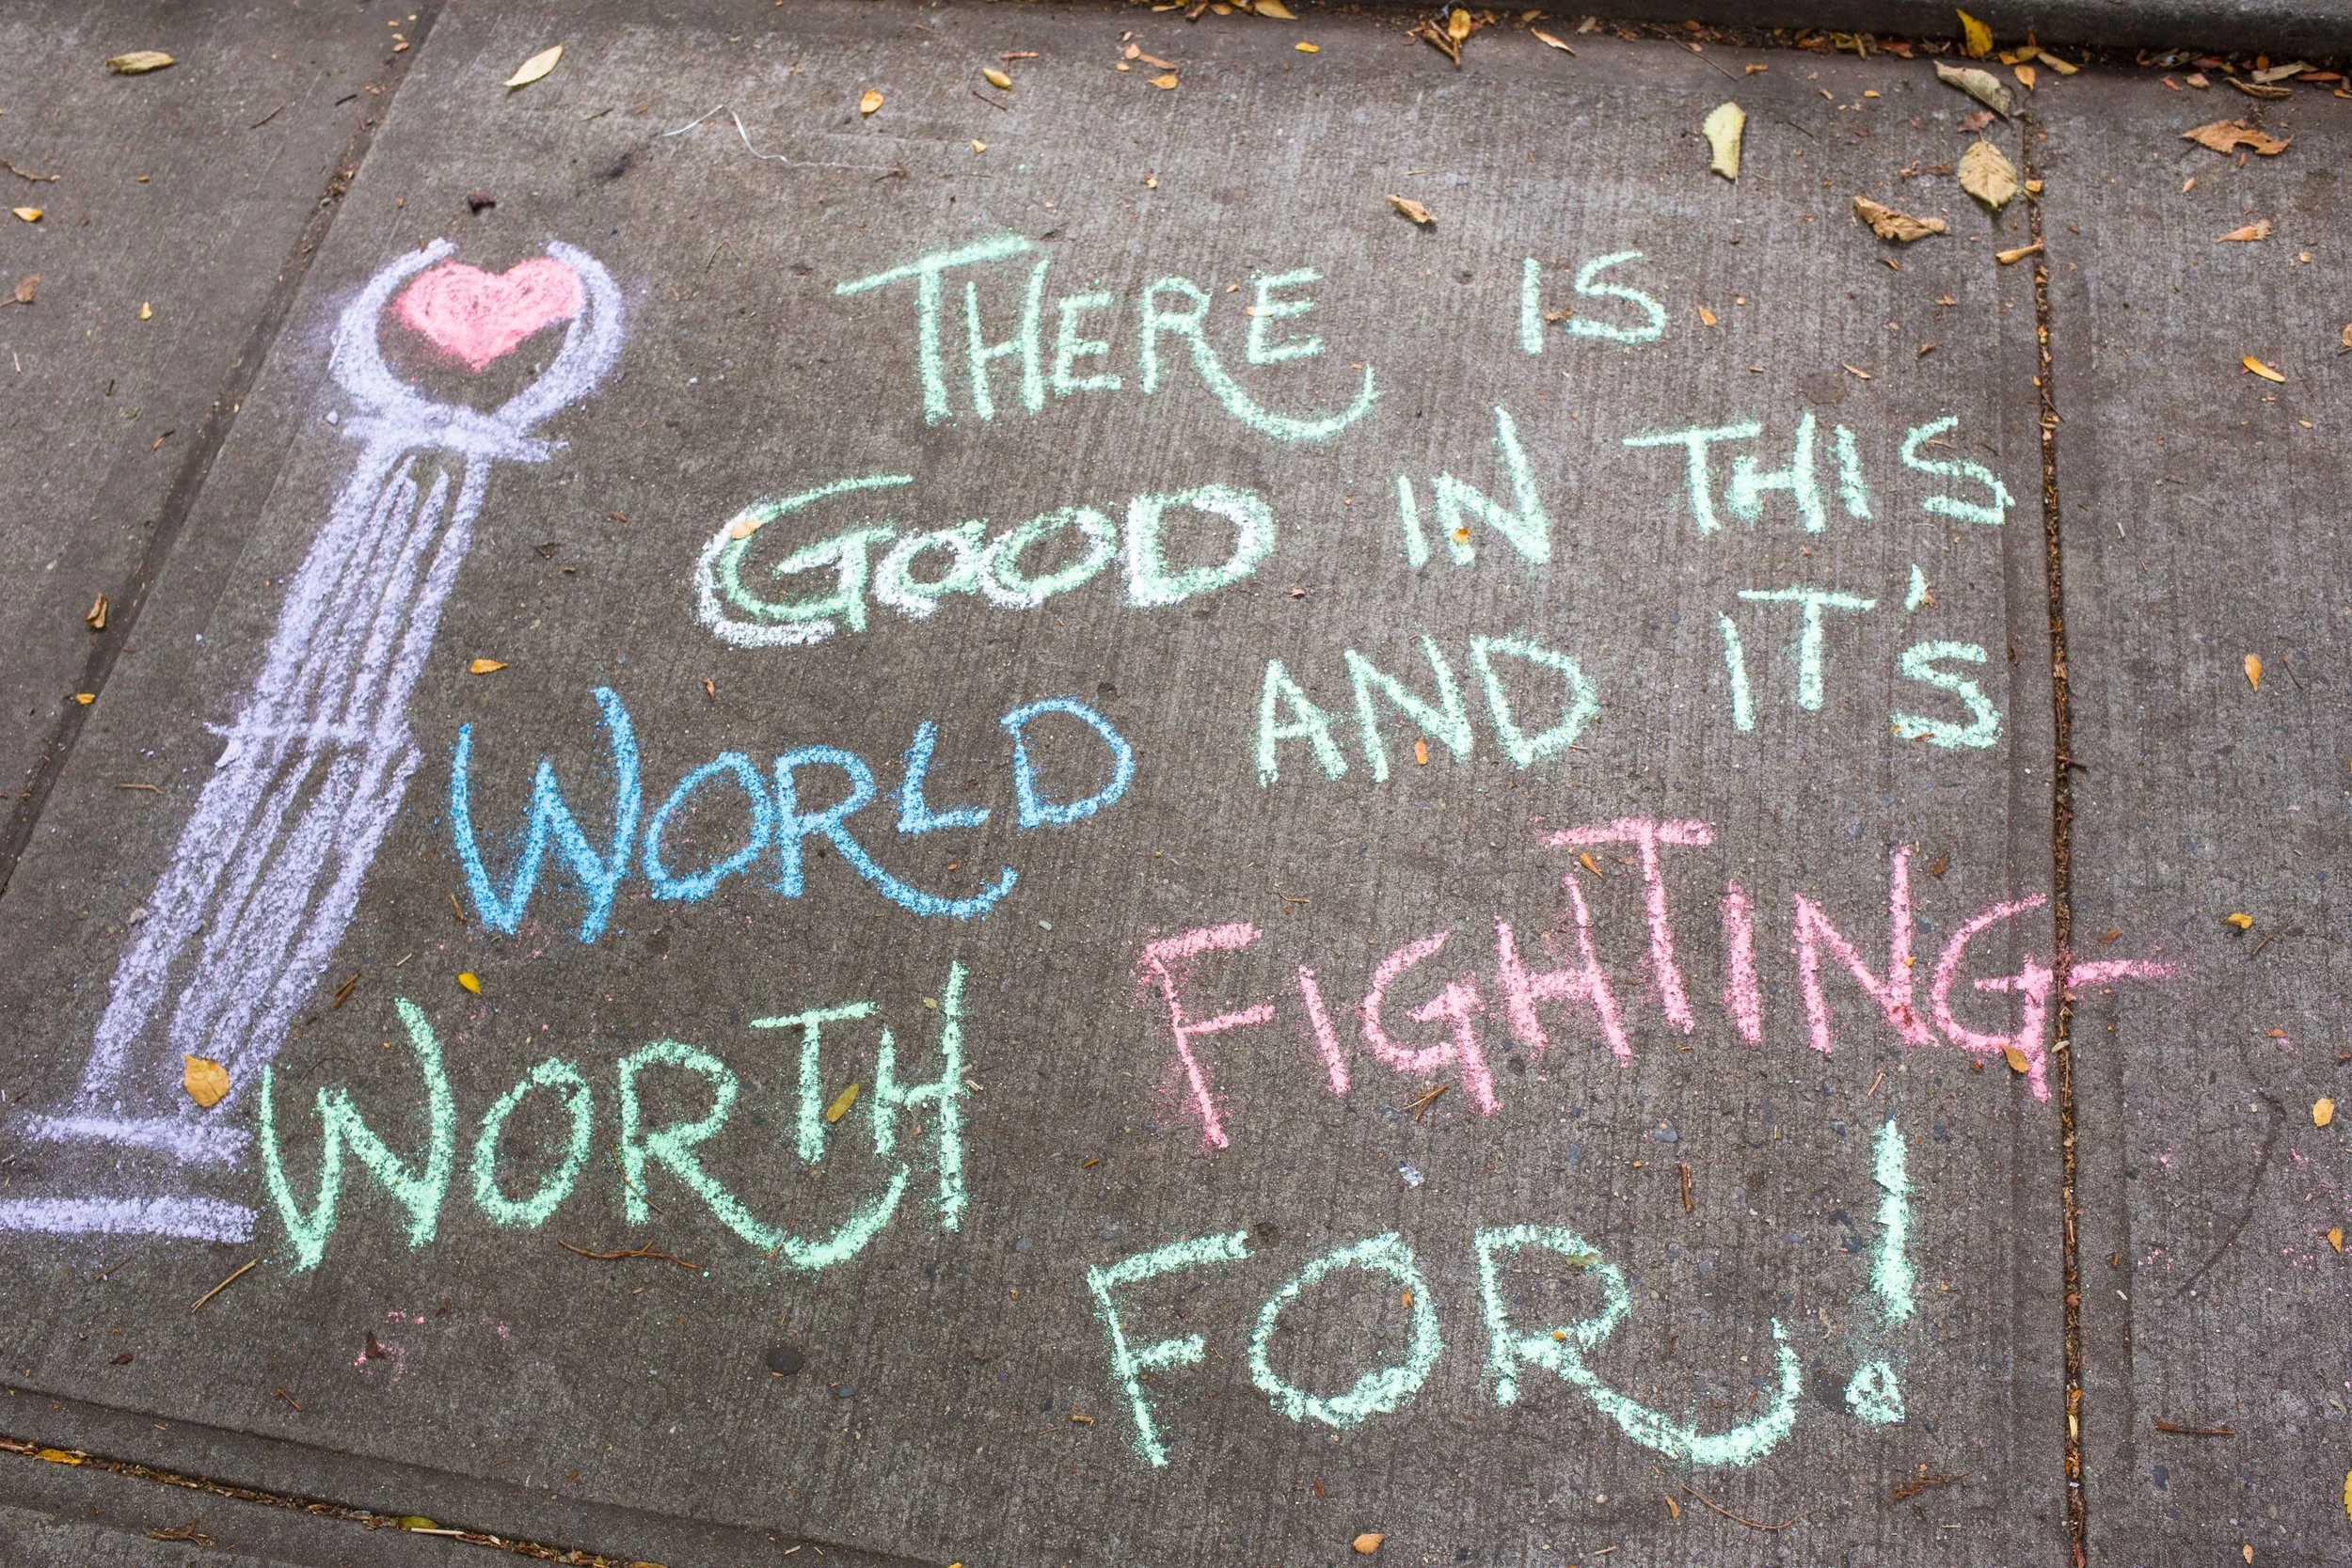 THERE IS
GOOD IN THIS
WORLD AND IT'S
WORTH FIGHTING
FOR!